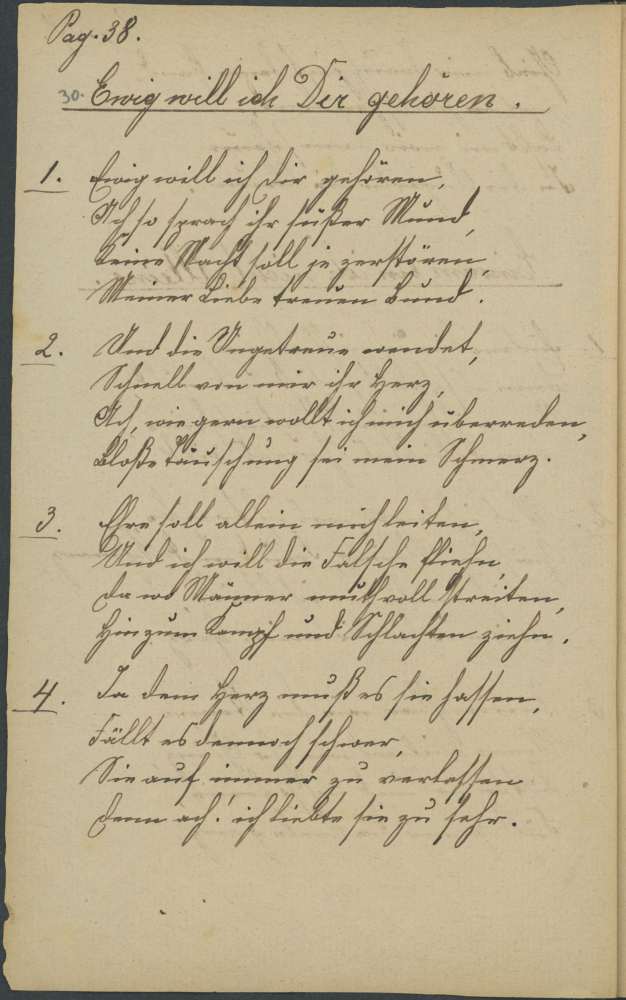 Pag. 38.
30. Ewig will ich Dir gehören.
1. Ewig will ich dir gehören,
Ach so sprach ihr süßer Mund,
Keine Macht soll je zerstören,
Meiner Liebe treuen Bund.
2. Und die Ungetreue wendet,
Schnell von mir ihr Herz,
Ach, wie gern wollt ich mich überreden,
Bloße Täuschung sei mein Schmerz.
3. Ehre soll allein mich leiten,
Und ich will die Falsche fliehn,
Da wo Männer muthvoll streiten,
Hin zum Kampf und Schlachten ziehn.
4. Ja dem Herz muß es sie hassen,
Fällt es dennoch schwer,
Sie auf immer zu verlassen
Denn ach! ich liebte sie zu sehr.